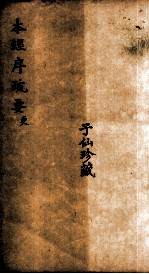 本經序疏要
夏
子仙珍藏